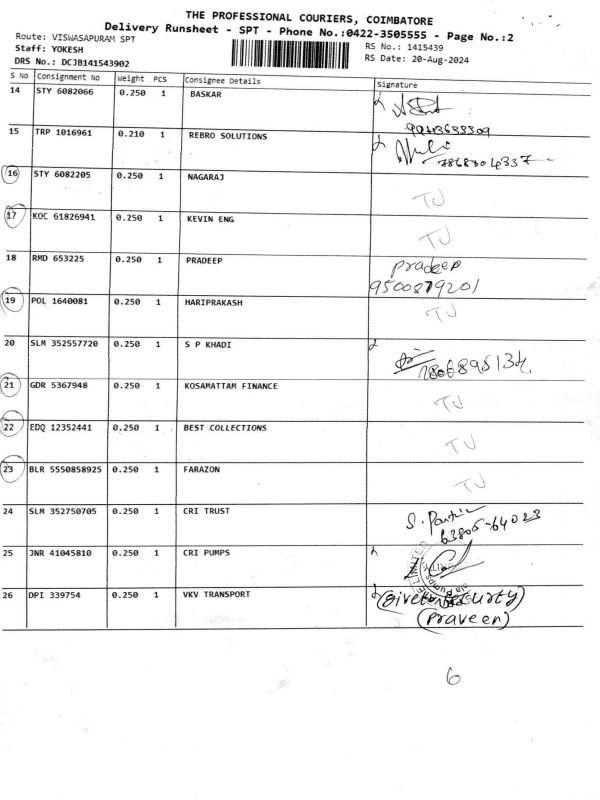 THE PROFESSIONAL COURIERS, COIMBATORE
Delivery Runsheet - SPT - Phone No.:0422-3505555 - Page No.:2
Route: VISWASAPURAM SPT
RS No.: 1415439
Staff: YOKESH
RS Date: 20-Aug-2024
DRS No.: DCJB141543902
S No Consignment No Weight PCS Consignee Details Signature
14 STY 6082066 0.250 1 BASKAR
15 TRP 1016961 0.210 1 REBRO SOLUTIONS
16 STY 6082205 0.250 1 NAGARAJ TJ
17 KOC 61826941 0.250 1 KEVIN ENG TJ
18 RMD 653225 0.250 1 PRADEEP pradeep
9500879201
19 POL 1640081 0.250 1 HARIPRAKASH TJ
20 SLM 352557720 0.250 1 S P KHADI
21 GDR 5367948 0.250 1 KOSAMATTAM FINANCE TJ
22 EDQ 12352441 0.250 1 BEST COLLECTIONS TJ
23 BLR 5550858925 0.250 1 FARAZON TJ
24 SLM 352750705 0.250 1 CRI TRUST
63805-64023
25 JNR 41045810 0.250 1 CRI PUMPS
26 DPI 339754 0.250 1 VKV TRANSPORT
(Praveen)
6